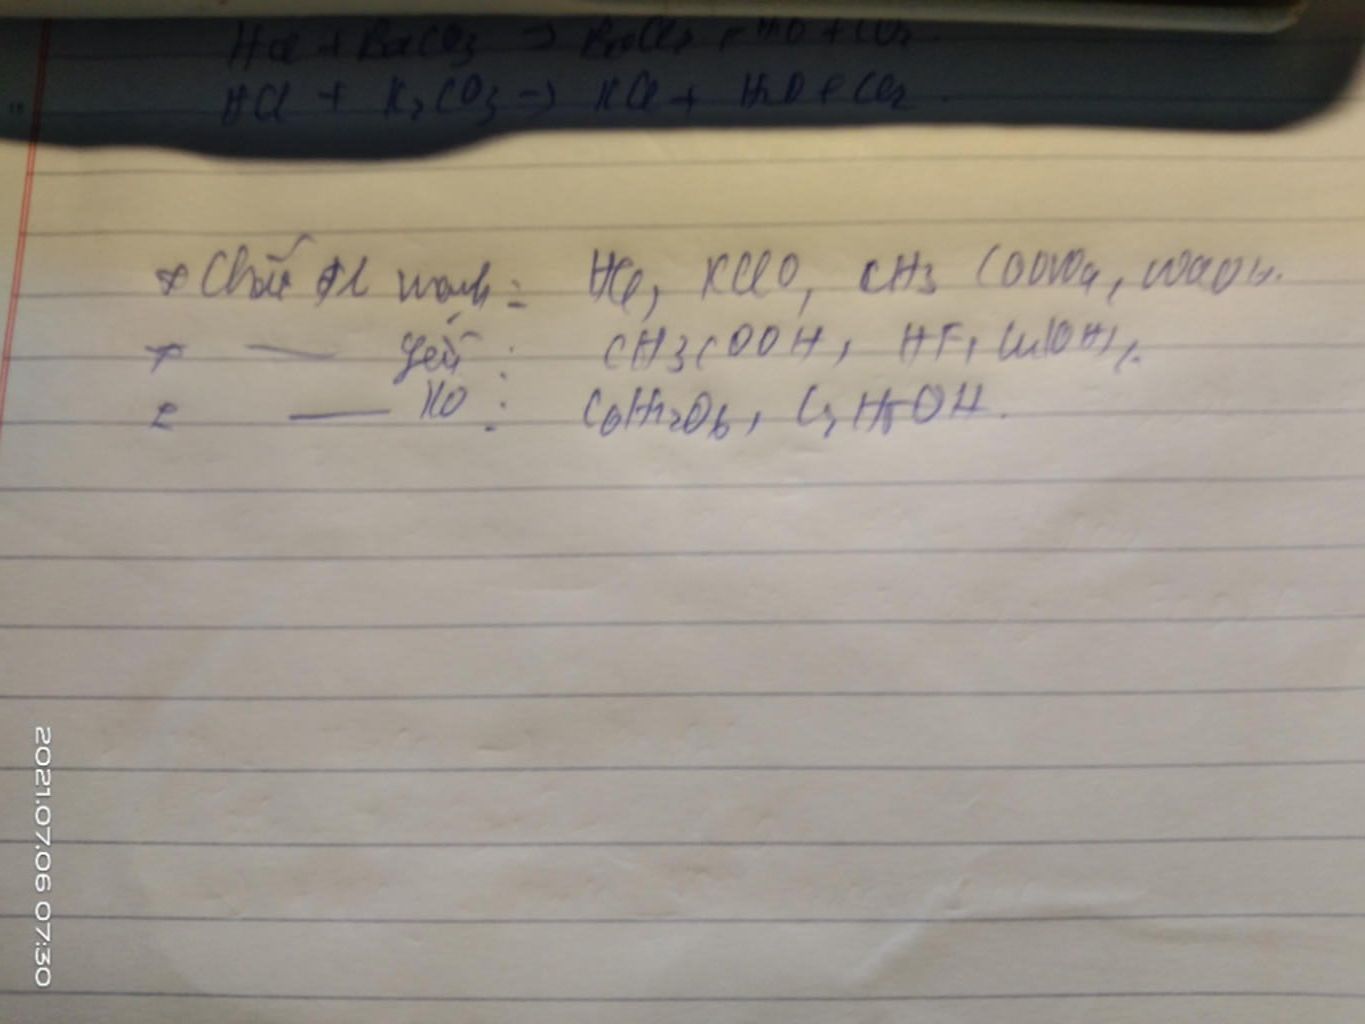 HCl + BaCO3 → BaCl2 + H2O + CO2
HCl + K2CO3 → KCl + H2O + CO2.
* Chất đl mạnh: HCl, KClO, CH3COONa,
+ — yếu: CH3COOH, HF, Cu(OH)2.
— ko: C6H12O6, C2H5OH.
2021.07.06 07:30